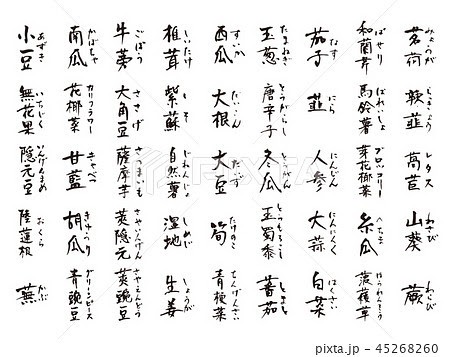 茗荷 みょうが
辣韮 らっきょう
萵苣 レタス
山葵 わさび
蕨 わらび
和蘭芹 ぱせり
馬鈴薯 ばれいしょ
芽花椰菜 ブロッコリー
糸瓜 へちま
菠薐草 ほうれんそう
茄子 なす
韮 にら
人参 にんじん
大蒜 にんにく
白菜 はくさい
玉葱 たまねぎ
唐辛子 とうがらし
冬瓜 とうがん
玉蜀黍 とうもろこし
蕃茄 とまと
西瓜 すいか
大根 だいこん
大豆 だいず
筍 たけのこ
青梗菜 ちんげんさい
椎茸 しいたけ
紫蘇 しそ
自然薯 じねんじょ
湿地 しめじ
生姜 しょうが
牛蒡 ごぼう
大角豆 ささげ
薩摩芋 さつまいも
莢隠元 さやいんげん
莢豌豆 さやえんどう
南瓜 かぼちゃ
花椰菜 カリフラワー
甘藍 きゃべつ
胡瓜 きゅうり
青豌豆 グリーンピース
小豆 あずき
無花果 いちじく
隠元豆 いんげんまめ
陸蓮根 おくら
蕪 かぶ
PIXTA
pixta.jp - 45268260